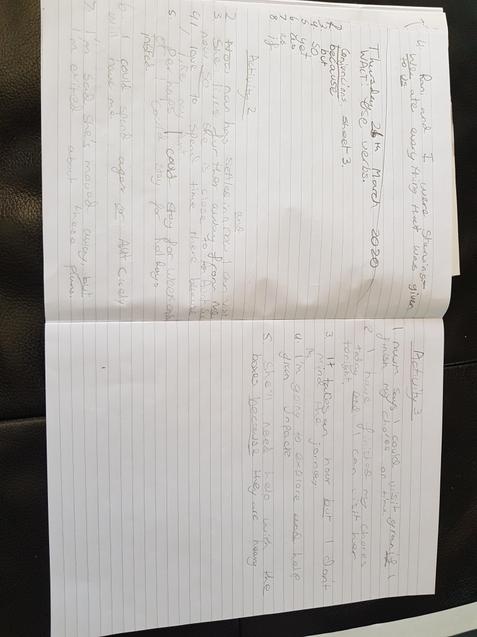 4. Ran and I were starving
We ate every thing that was given
to us
Thursday 26th March 2020
WALT: Use verbs.
Conjunctions sheet 3.
2 because
3 but
4 so
5 yet
6
7
8 if
Activity 2
2 Now nan has settled in and I can
3 She lives further away from me
now so she is close to
4 I love to spend time there because
5 Perhaps I could stay for weekends
or I could stay for holidays
instead
6 I could spend ages or
will have me
7 I'm sad she's moved away but
I'm exited about these plans.
Activity 3
1 mum says I could visit gran if I
finish my chores on time
2 I have finished my chores
today and I can visit her
tonight.
3 It takes an hour but I don't
mind the journey
4 I'm going to explore and help
gran unpack
5 She'll need help with the
boxes because they are heavy